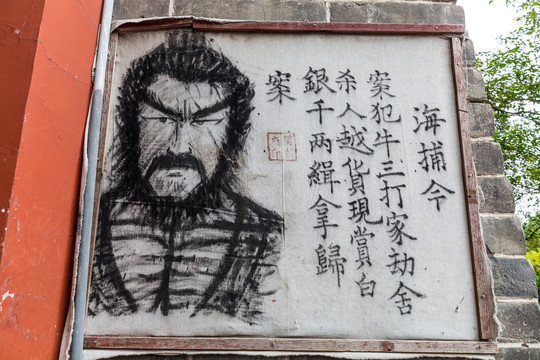 海捕令
案犯牛三打家劫舍
杀人越货現賞白
銀千两緝拿歸
案